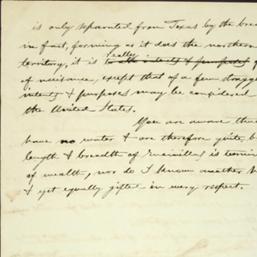 is only separated from Texas by the brea
in fact, forming as it does the northern
territory, it is really to all intents & purposes
of nuisance, except that of a few dragg
intents & purposes may be considered
the United States.
You are aware tha
have no water & are therefore quite b
length & breadth of
of wealth, nor do I know another
& yet equally gifted in every respect.